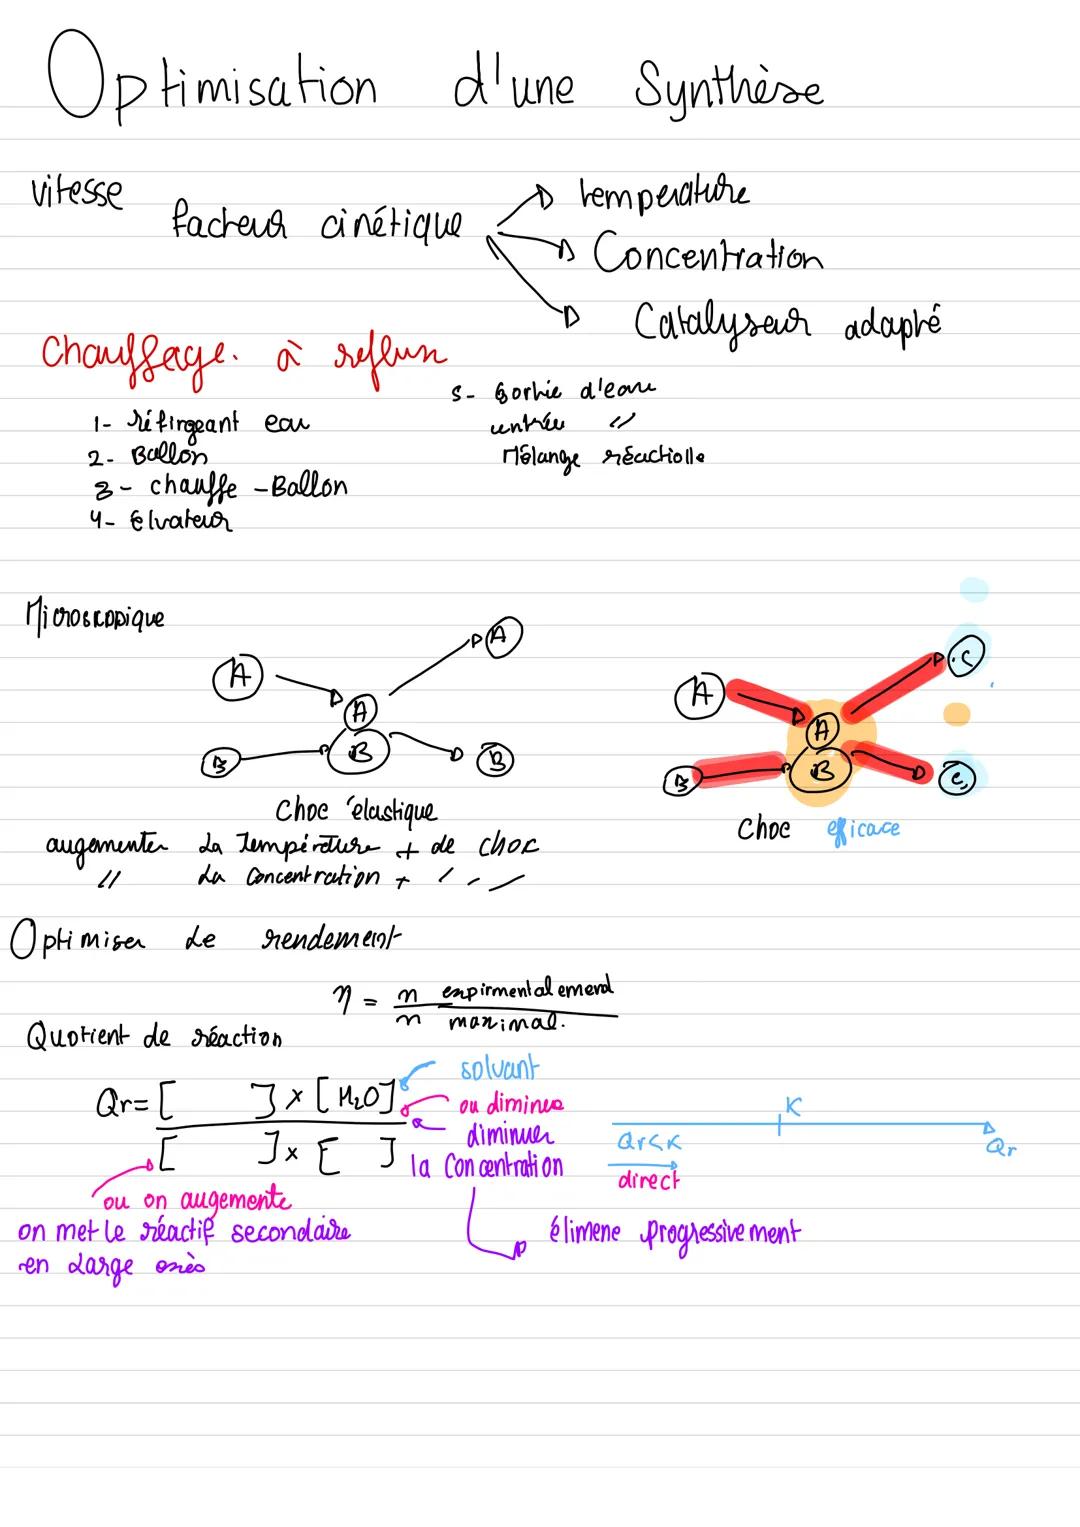 Optimisation d'une Synthèse
vitesse
facteur cinétique
temperature
Concentration
Catalyseur adapté
Chauffage. à reflux
1- réfirgeant eau
2- Ballon
3- chauffe - Ballon
4- élvateur
5- Sortie d'eau
entrée //
Mélange réactiolle
Microscopique
A
A
A
B
B
B
Choc élastique
A
A
C
B
B
C
Choc eficace
augmenter La Température + de choc
// La Concentration + / - /
Optimiser Le rendement
η = n expirmentalemend
n maximal.
Quotient de réaction
Qr = [ ] × [H₂O]
[ ] × [ ]
solvant
ou diminue
diminuer
la Concentration
élimene progressivement
ou on augmente
on met le réactif secondaire
en Large exès
K
Qr<K
Qr
direct